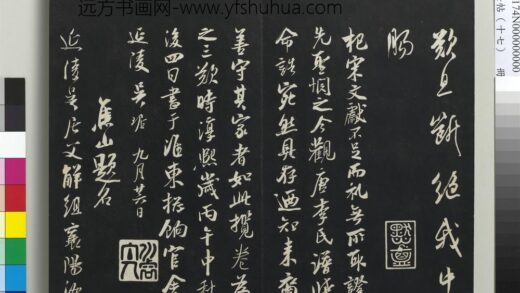 远方书画网-www.yfshuhua.com
帖（十七） 册
174N000000000
歎且斷絕我中
腸
杞宋文獻不足而礼无所取證
先聖惘之今觀唐李氏譜
命誥宛然具存廼知来裔
善守其家者如此攬卷為
之三歎時淳熙歲丙午中秋
後四日書于淮東撫餉官舍
延陵吴琚 九月廿六日
焦山題名
延陵吴居父解組襄陽